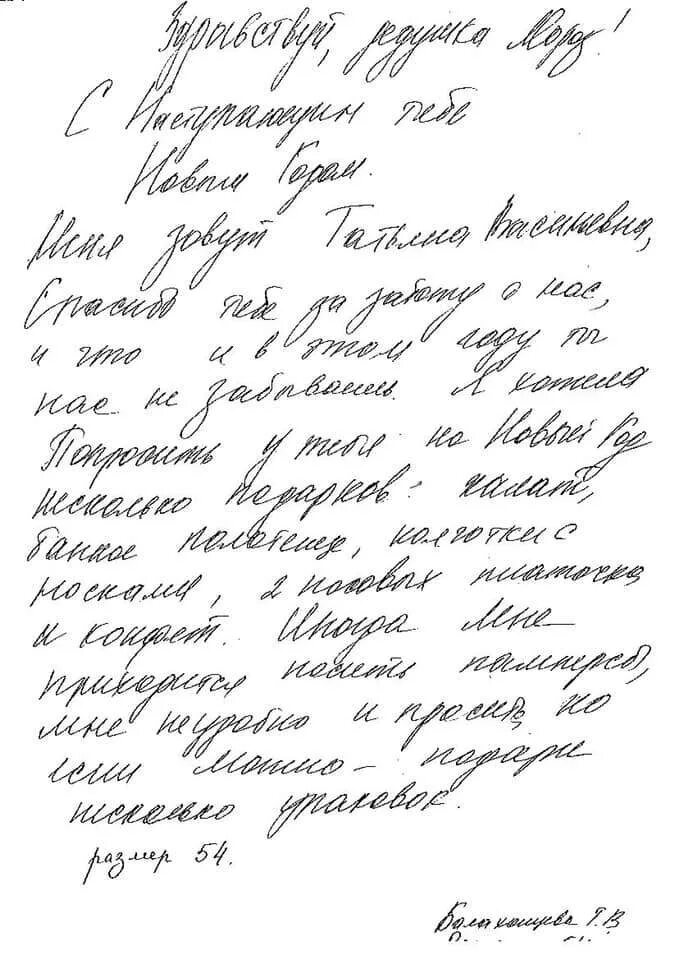 Здравствуй, дедушка Мороз!
С Наступающим тебе
Новым Годом.
Меня зовут Татьяна Васильевна,
Спасибо тебе за заботу о нас,
и что и в этом году ты
нас не забываешь. Я хотела
Попросить у тебя на Новый Год
несколько подарков: халат,
банное полотенце, колготки с
носками, 2 носовых платочка
и конфет. Иногда мне
приходится носить памперсы,
мне неудобно и просить, но
если можно – подари
несколько упаковок.
размер 54.
Т.В